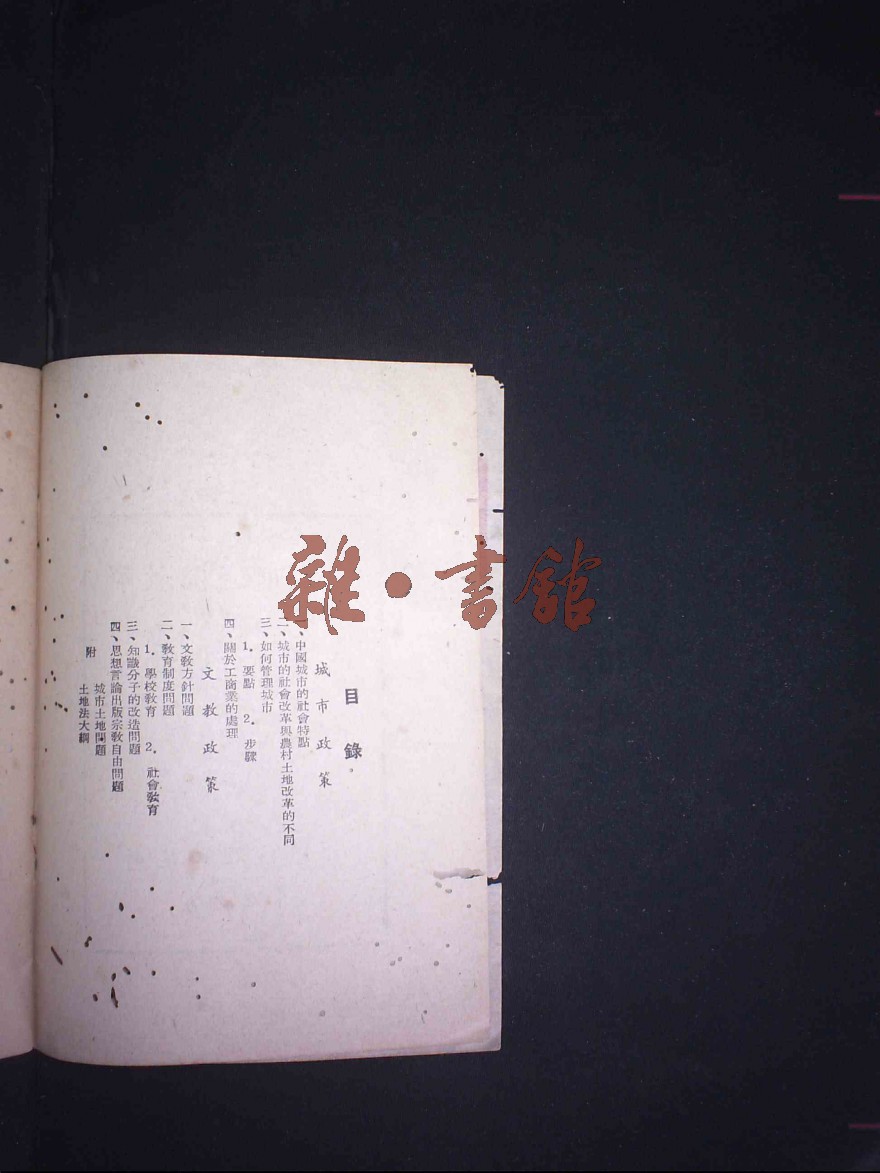 目錄
城市政策
一、中國城市的社會特點
二、城市的社會改革與農村土地改革的不同
三、如何管理城市
1．要點　2．步驟
四、關於工商業的處理
文教政策
一、文教方針問題
二、教育制度問題
1．學校教育　2．社會教育
三、知識分子的改造問題
四、思想言論出版宗教自由問題
附
城市土地問題
土地法大綱
雜·書館